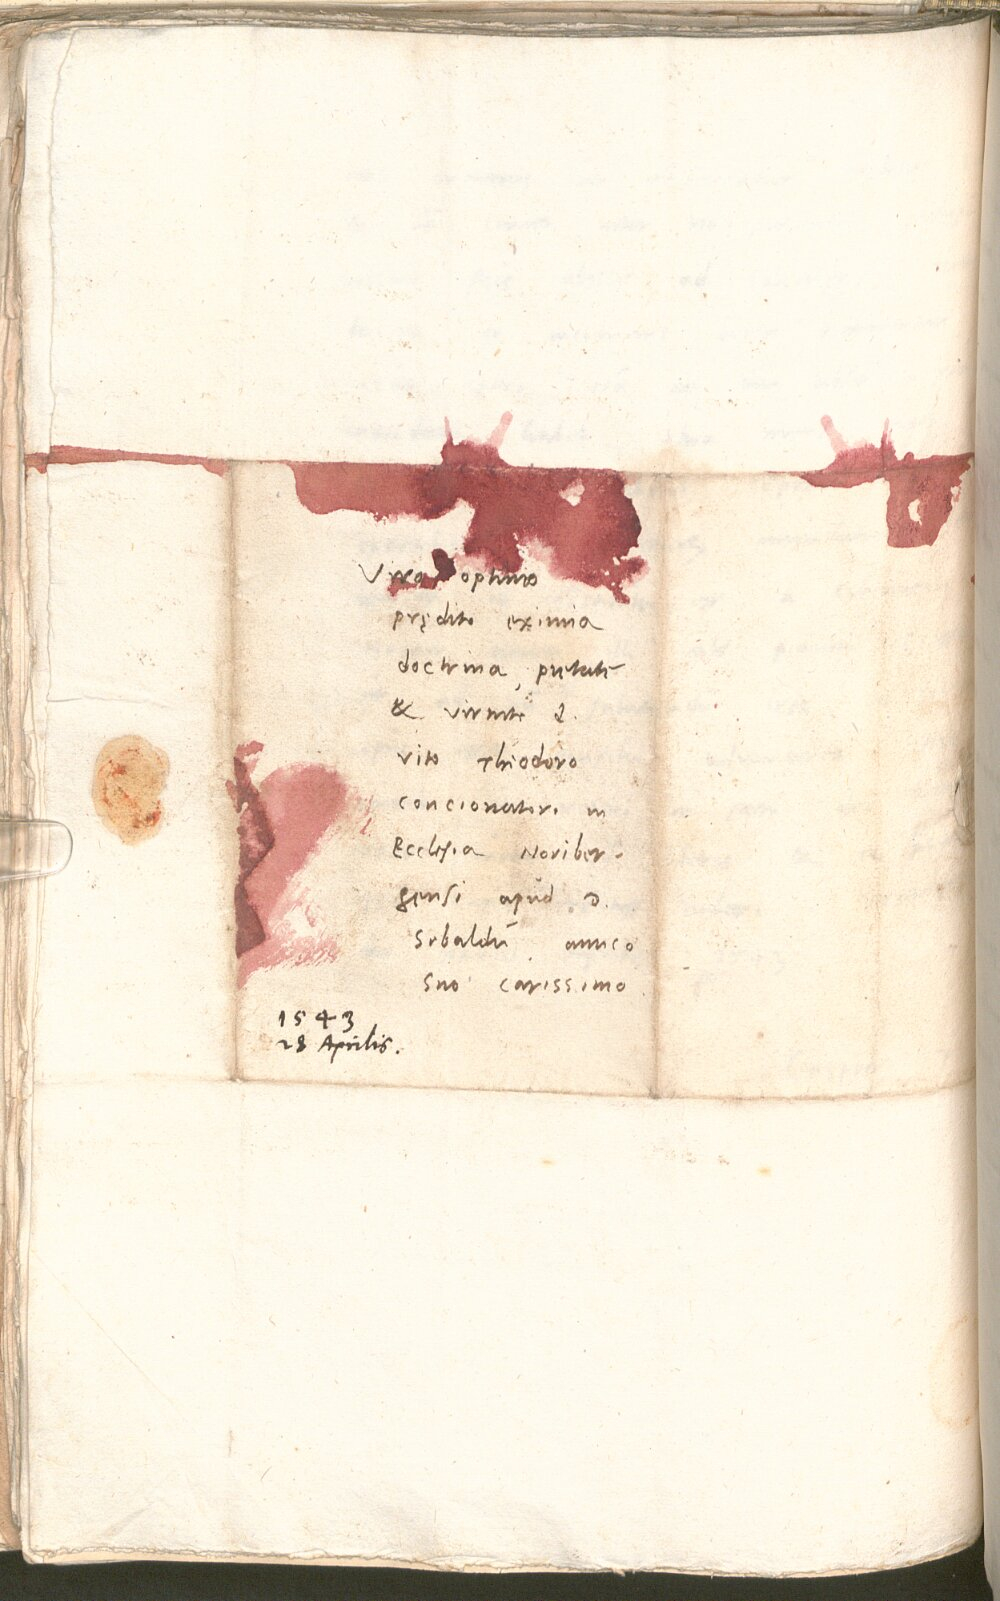 Viro optimo
prędito eximia
doctrina, pietate
& virtute d.
vito Theodoro
concionatori in
Ecclesia Noriber-
gensi apud D.
Sebaldū amico
suo carissimo
1543
28 Aprilis.